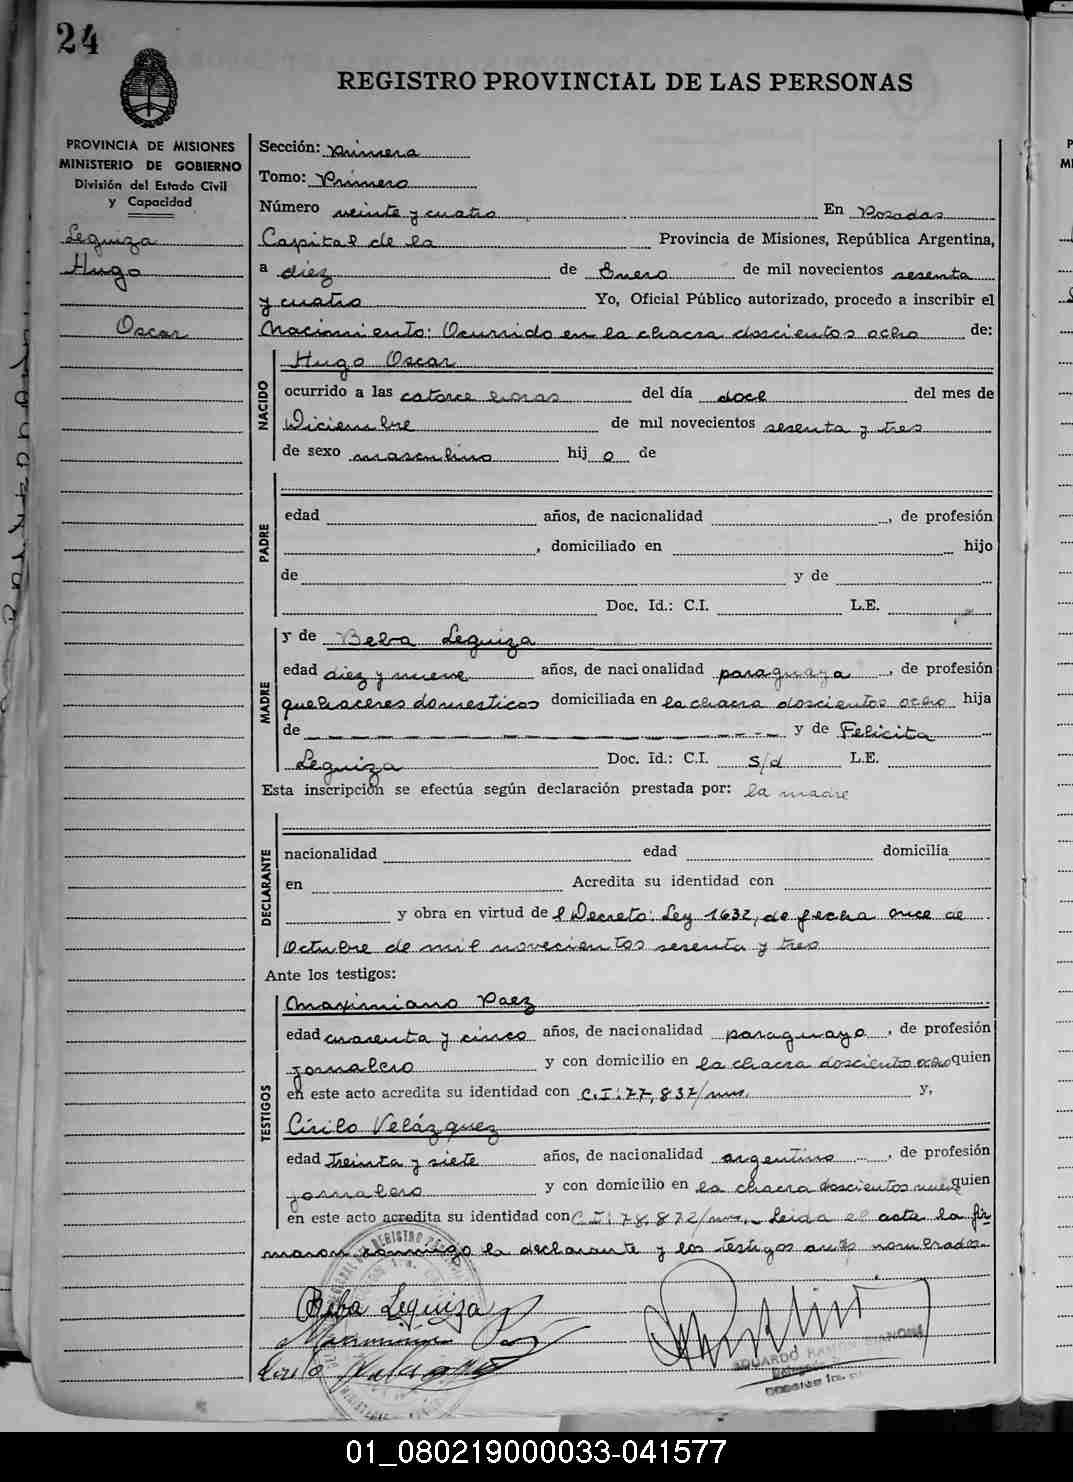 24
REGISTRO PROVINCIAL DE LAS PERSONAS
PROVINCIA DE MISIONES
MINISTERIO DE GOBIERNO
División del Estado Civil
y Capacidad
Leguiza
Hugo
Oscar
Sección: Primera
Tomo: Primero
Número veinte y cuatro En Posadas
Capital de la Provincia de Misiones, República Argentina,
a diez de Enero de mil novecientos sesenta
y cuatro Yo, Oficial Público autorizado, procedo a inscribir el
Nacimiento: Ocurrido en la chacra doscientos ocho de:
NACIDO
Hugo Oscar
ocurrido a las catorce horas del día doce del mes de
Diciembre de mil novecientos sesenta y tres
de sexo masculino hij o de
PADRE
edad años, de nacionalidad , de profesión
, domiciliado en hijo
de y de
Doc. Id.: C.I. L.E.
MADRE
y de Beba Leguiza
edad diez y nueve años, de nacionalidad paraguaya , de profesión
quehaceres domesticos domiciliada en la chacra doscientos ocho hija
de y de Felicita
Leguiza Doc. Id.: C.I. s/d L.E.
Esta inscripción se efectúa según declaración prestada por: la madre
DECLARANTE
nacionalidad edad domicilia
en Acredita su identidad con
y obra en virtud de l Decreto: Ley 1632, de fecha once de
Octubre de mil novecientos sesenta y tres
Ante los testigos:
TESTIGOS
Maximiano Paez
edad cuarenta y cinco años, de nacionalidad paraguayo , de profesión
jornalero y con domicilio en la chacra doscientos ocho quien
en este acto acredita su identidad con C.I: 77,837/mns. y,
Cirilo Velázquez
edad treinta y siete años, de nacionalidad argentino , de profesión
jornalero y con domicilio en la chacra doscientos nueve quien
en este acto acredita su identidad con C.I: 78,872/mns.- Leida el acta la fir
maron conmigo la declarante y los testigos antes nombrados.-
Beba Leguiza
EDUARDO RAMON
01_080219000033-041577